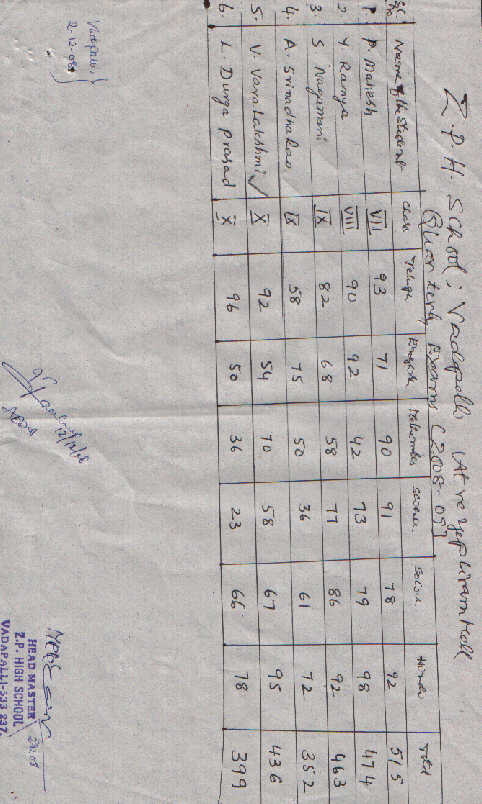 Z.P.H. School; Vadapalli (Atreyapuram Mdl
Quarterly Exams (2008-09)
Sl No Name of the Student Class Telugu English Mathematics Science Social Hindi Total
1. P. Mahesh VII 93 71 90 91 78 92 515
2 Y Ramya VIII 90 92 42 73 79 98 474
3. S Nagamani IX 82 68 58 77 86 92 463
4. A. Srinadharao IX 58 75 50 36 61 72 352
5. V. Varalakshmi ✓ X 92 54 70 58 67 95 436
6. L. Durga Prasad X 96 50 36 23 66 78 399
Vadapalli,
2-12-08
HEAD MASTER
Z.P. HIGH SCHOOL
VADAPALLI-533 237.